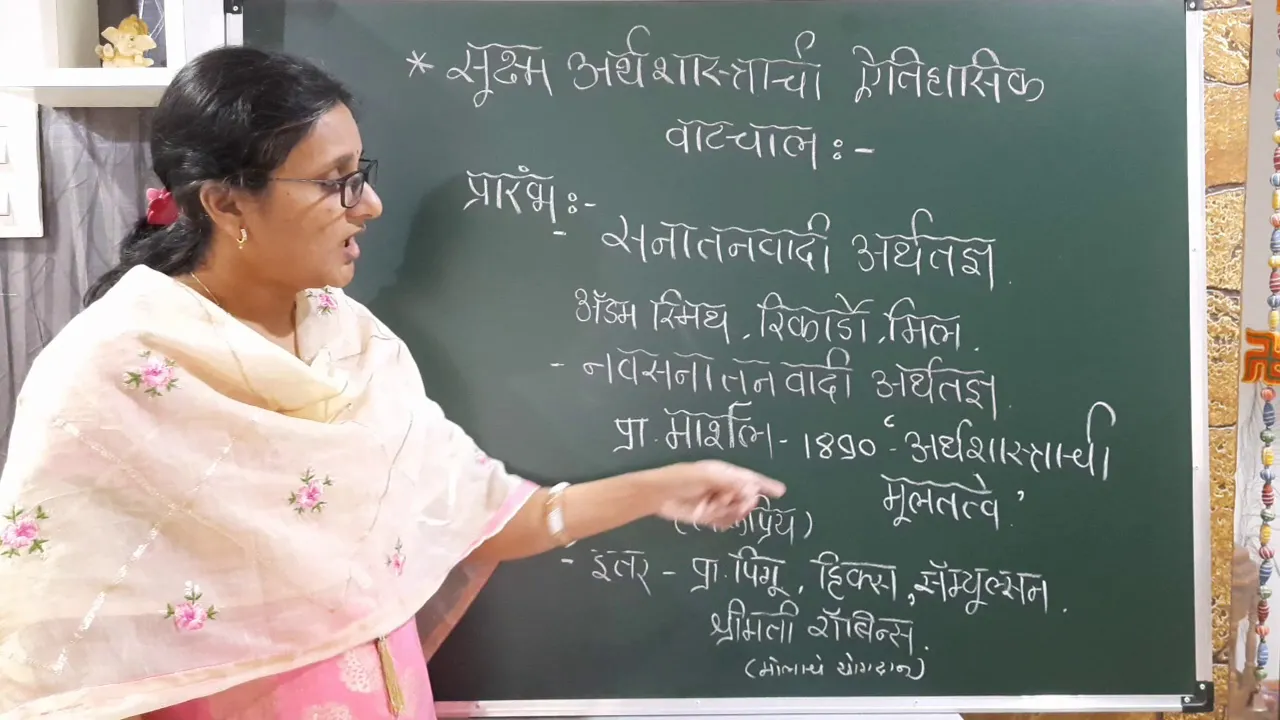 * सूक्ष्म अर्थशास्त्राची ऐतिहासिक
वाटचाल :-
प्रारंभ :-
- सनातनवादी अर्थतज्ञ.
ॲडम स्मिथ, रिकार्डो, मिल.
- नवसनातनवादी अर्थतज्ञ.
प्रा. मार्शल - 1890 - 'अर्थशास्त्राची
मूलतत्त्वे'
प्रिय)
- इतर - प्रा. पिगू, हिक्स, सॅम्युल्सन.
श्रीमती रॉबिन्स.
(मोलाचे योगदान)